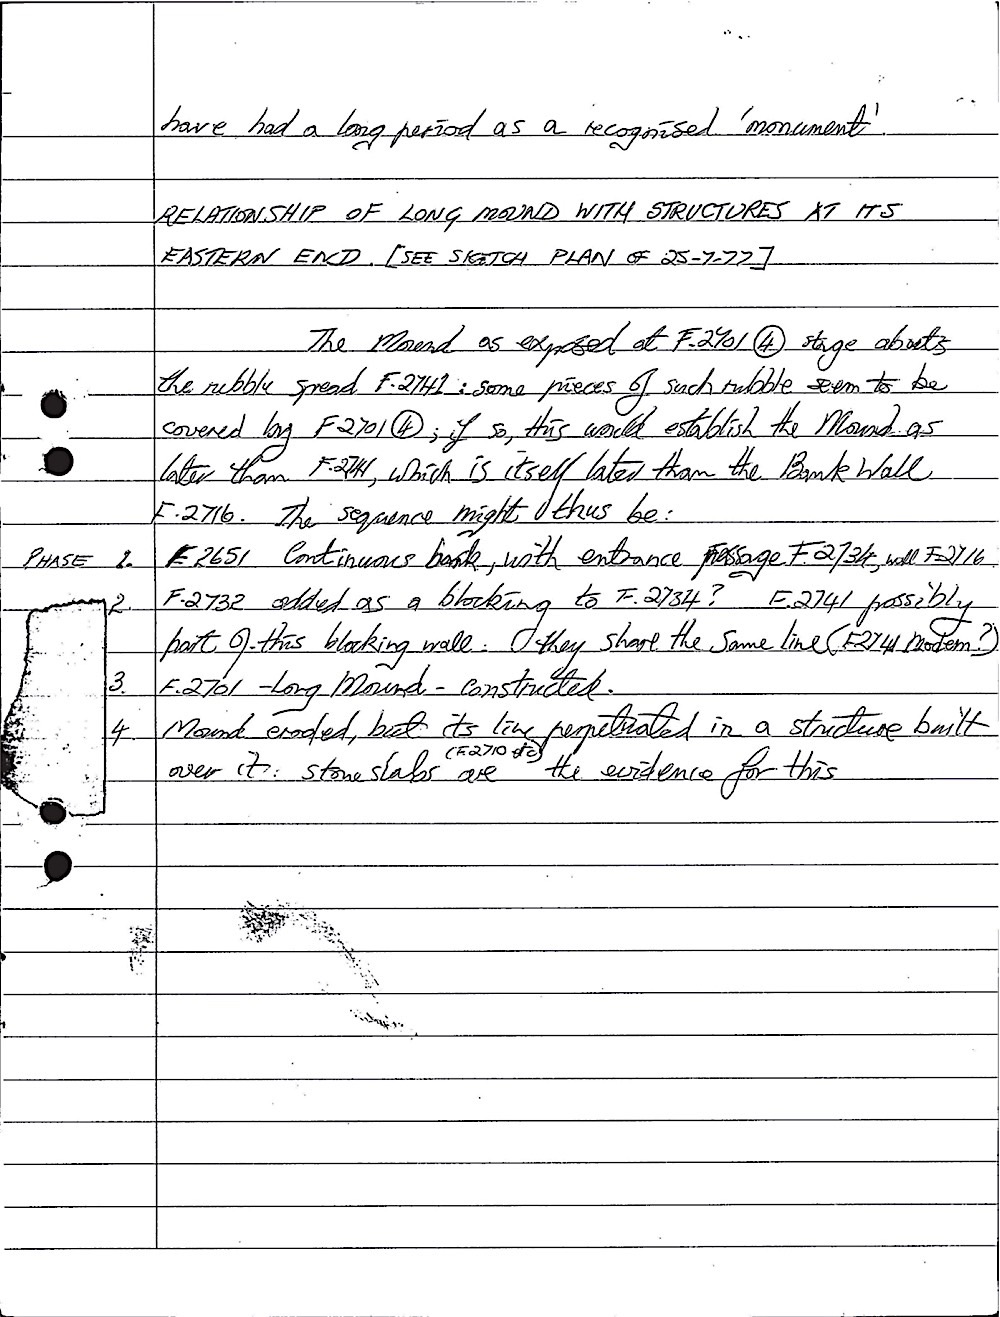 have had a long period as a recognised 'monument'.
RELATIONSHIP OF LONG MOUND WITH STRUCTURES AT ITS
EASTERN END. [SEE SKETCH PLAN OF 25-7-77]
The Mound as exposed at F.2701 ④ stage abutts
the rubble spread F.2741: some pieces of such rubble seem to be
covered by F2701④; if so, this would establish the Mound as
later than F.2741, which is itself later than the Bank Wall
F.2716. The sequence might thus be:
PHASE 1. F2651 Continuous bank, with entrance passage F.2734, wall F2716.
2. F.2732 added as a blocking to F.2734? F.2741 possibly
part of this blocking wall. They share the same line (F2741 Modern?)
3. F.2701 - Long Mound - constructed.
4. Mound eroded, but its line perpetuated in a structure built
over it: stone slabs (F2710 etc) are the evidence for this